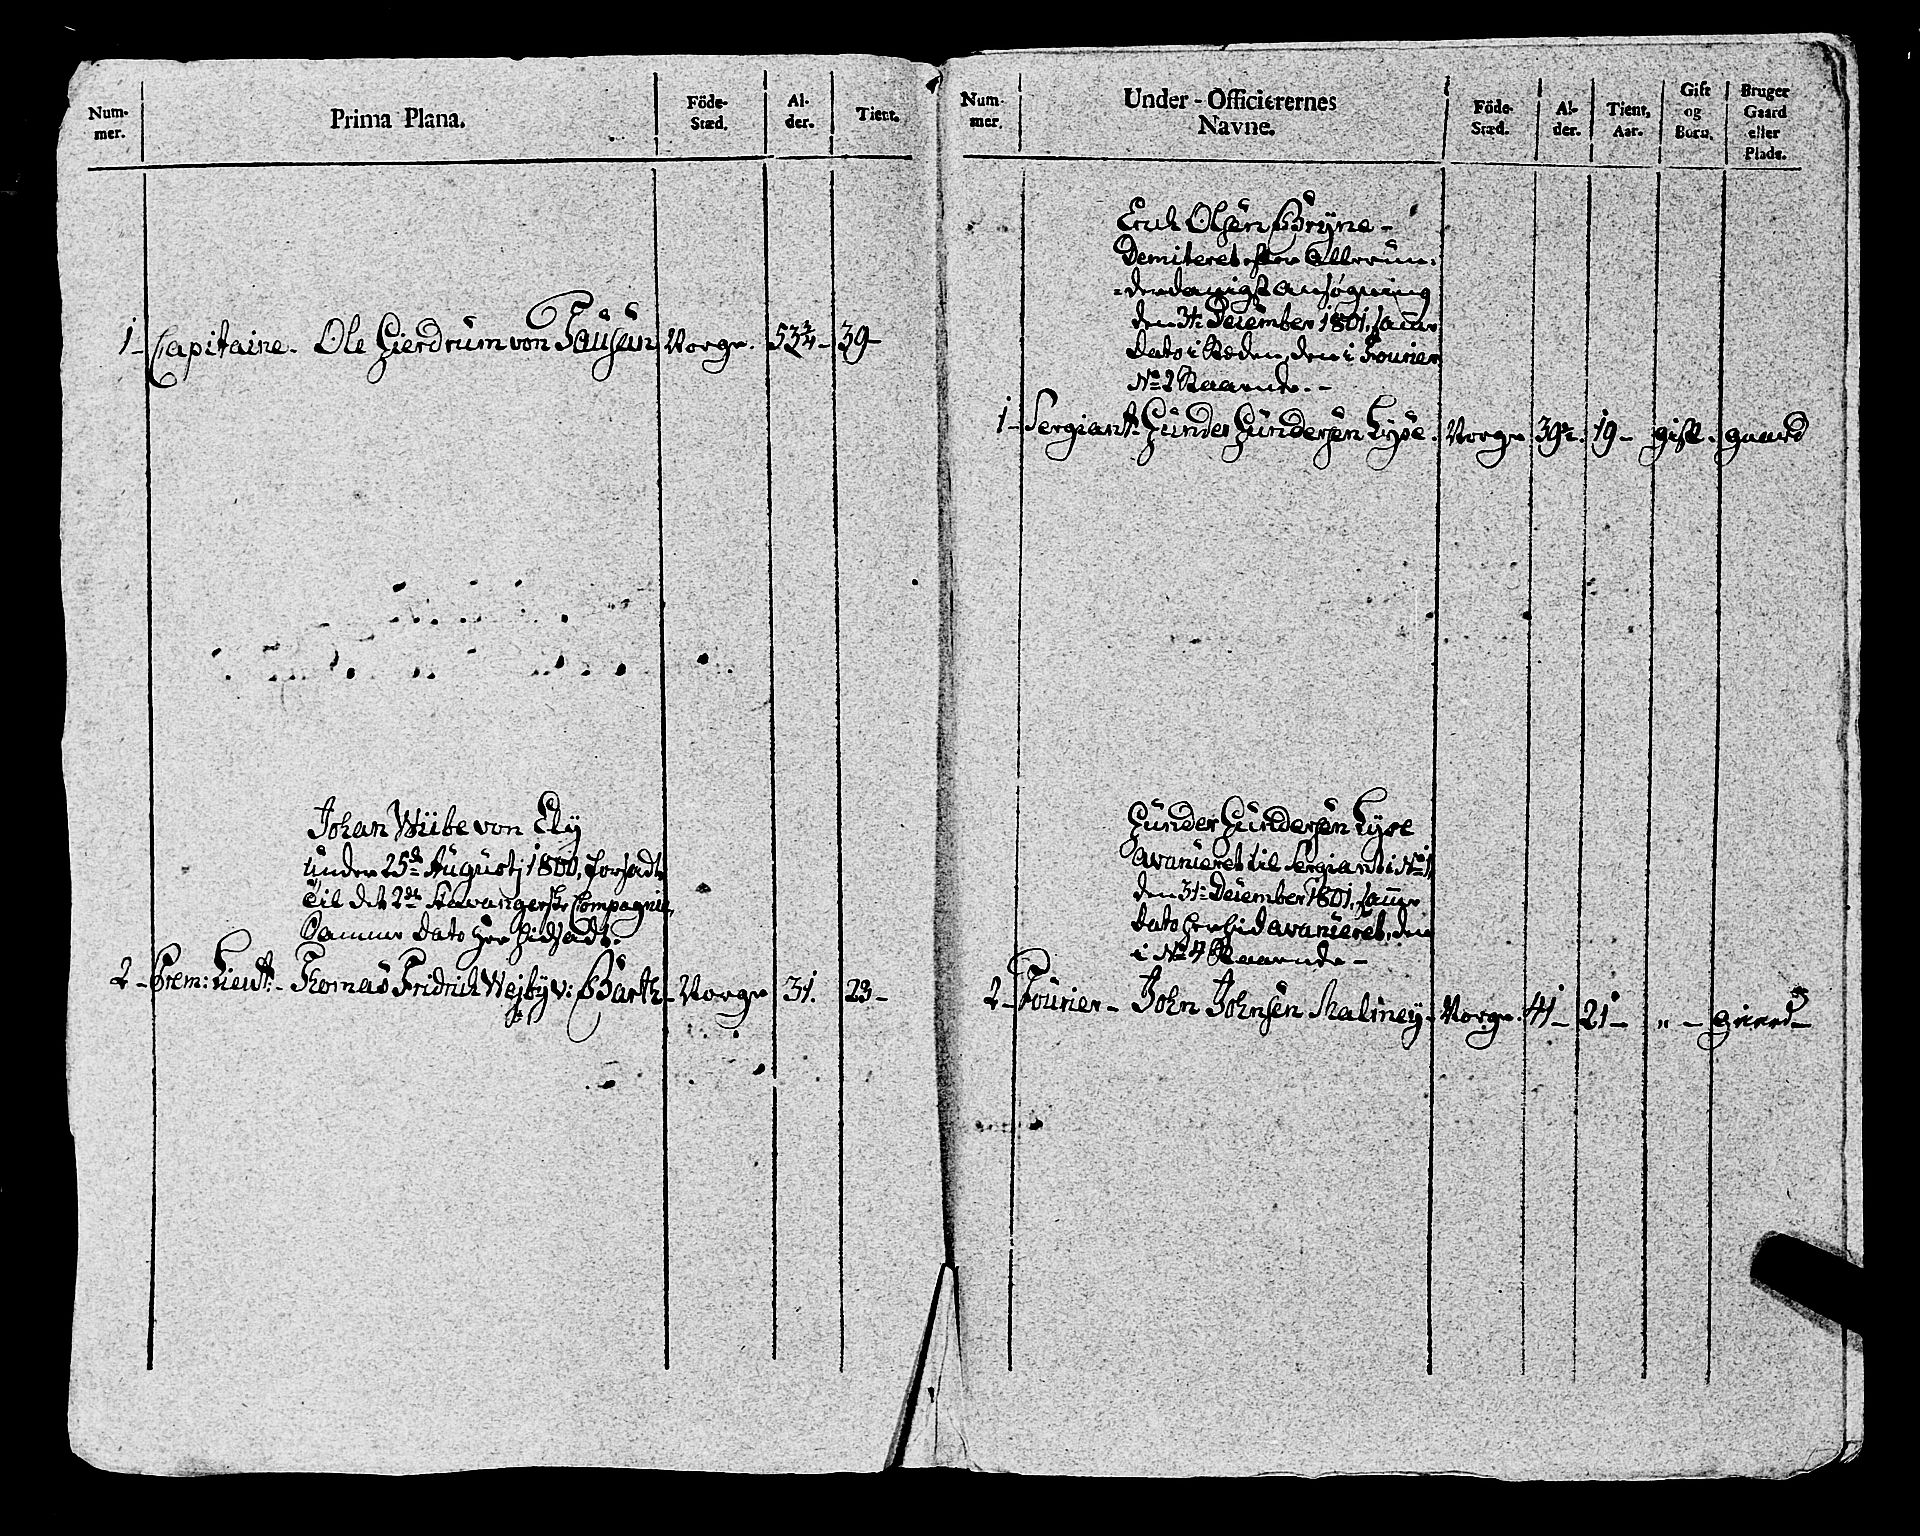 Num-
mer.
Prima Plana.
Föde-
Stæd.
Al-
der.
Tient.
1 - Capitaine - Ole Gierdrum von Fausan Norge. 53¾ - 39 -
Johan Wiibe von Ely
under 25de Augustj 1800, forsadt
til det 2det Stavangerske Compagnie,
Samme Dato her hidsadt.
2 - Prem: Lieut: - Thomas Fridrich Wejby v: Barth - Norge 31. 23 -
Num-
mer.
Under-Officierernes
Navne.
Föde-
Stæd.
Al-
der.
Tient.
Aar.
Gift
og
Born.
Bruger
Gaard
eller
Plads.
Erich Olsen Bryne -
Demiteret efter allerun-
-derdanigst ansøgning
den 31te December 1801, samme
Dato i Steden, den i Fourier
No 2 Staaende. -
1 - Sergiant - Gunder Gundersen Lyse. Norge 39½. 19 - gift. gaard
Gunder Gundersen Lyse
avanieret til Sergiant i No 1,
den 31te December 1801, samme
Dato her hid avanieret, den
i No 4 Staaende -
2 - Fourier - John Johnsen Malmey - Norge. 41 - 21 - „ - gaard -